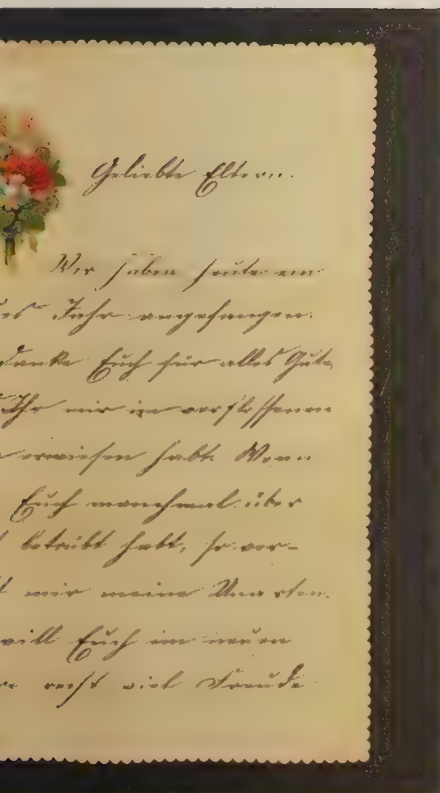 Geliebte Eltern.
Wir haben heute ein
es Jahr angefangen.
danke Euch für alles Gute,
Ihr mir im verflossenen
erwiesen habt. Wenn
Euch manchmal über
betrübt habt, so ver-
mir meine Unarten.
will Euch im neuen
recht viel Freude